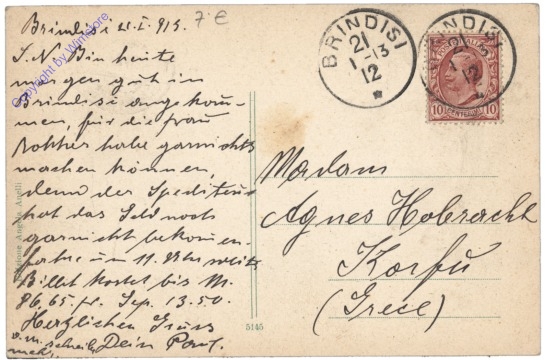 Brindisi 21.I.913.
7.€
Copyright by Wimstore
I. N. Bin heute
morgen gut in
Brindisi angekom-
men, für die Frau
habe garnichts
machen können,
denn der Spediteur
hat das Geld noch
garnicht bekommen
fahre um 11 Uhr weiter
Billet kostet bis M.
86,65 fr. Sep. 13.50.
Herzlichen Gruss
Dein Paul.
BRINDISI
21
1-13
12
BRINDISI
21
12
10
CENTESIMI
10
Madam
Agnes Hobracht
Korfu
(Grece)
5145